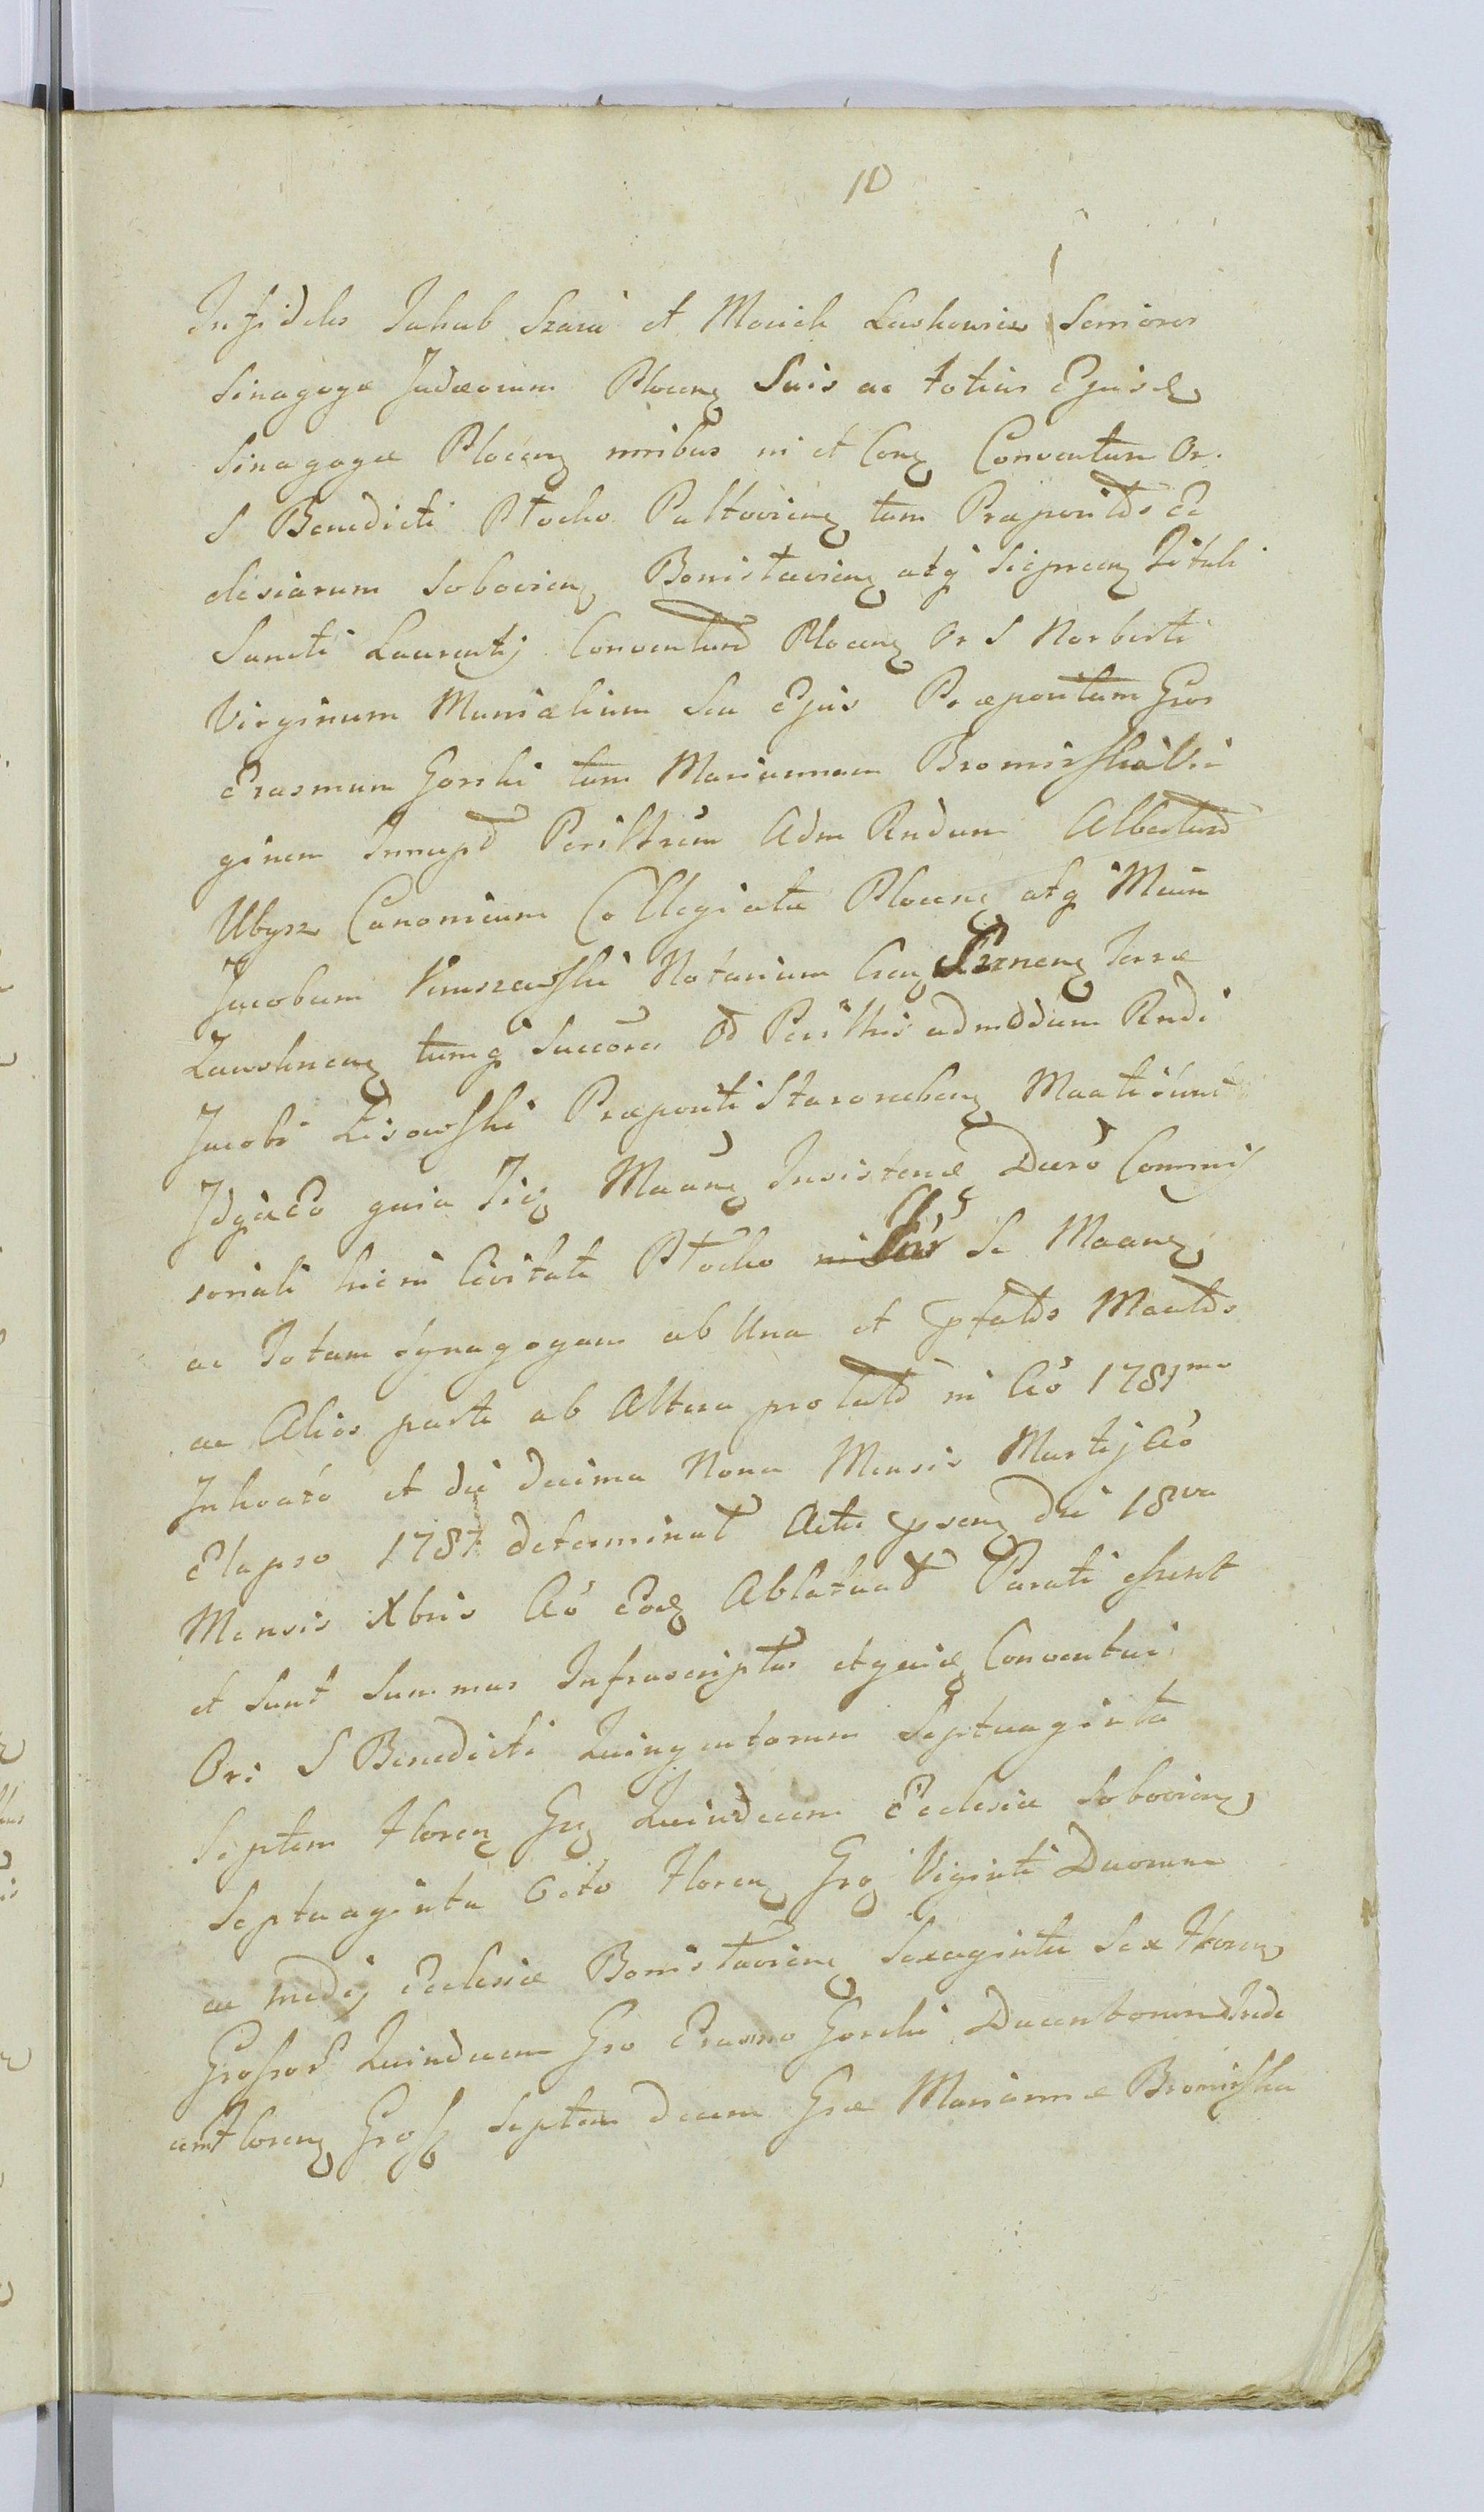 10
Infideles Jakub Szaia et Moziek Laskowicz Seniores
Sinagogæ Judæorum Plocen Suis ac totius Ejusd
Sinagogæ Plocen nnibus in et Con Conventum Or.
S Benedicti Płocko Pułtovien tum Præpositos Ec
clesiarum Sobovien Bonislavien atq Siepreen Tituli
Sancti Laurentij Conventum Plocen Or S Norberti
Virginum Munialium Seu Ejus Præpositum Gsos
Erasmum Gorski tum Mariannam Bromirska Vir
ginem Innupt Perilltrem Adm Rndum Albertum
Ubysz Canonicum Collegiatæ Plocen atq
Jacobum Notarium Cren Srznen Terræ
Zawskrnen tumq Succores Od Perilltris admodum Rndi
Jacobi Lisowski Præpositi Stararzeben Maati
Idq ex Eo quia Iidem Maan Insistendæ Decreto Commis
soriali hic in Civitate Płocko inter Se Maan
ac Totam Synagogam ab Una et pfatos Maatos
ac Alios parte ab Altera prolato in Ao 1781mo
Inhoato et die decima Nona Mensis Martij Ao
Elapso 1787 determinat Actu psen die 18va
Mensis Xbris Ao Eod Ablatuat Parati essent
et Sunt Summas Infrascriptas utq Conventui
Ori S Benedicti Quingentorum Septuaginta
Septem floren Gr Quindecem Ecclesiæ Sobovien
Septuaginta Octo floren Gro Viginti Duorum
ac medij Ecclesiæ Bonislavien Sexaginta Sex floren
Grossor Quindecem Gso Erasmo Gorski Ducentorum Trede
cem floren Gross Septem decem Gsæ Mariannæ Bromirska